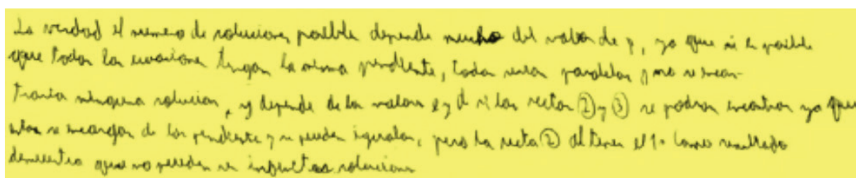 La verdad el numero de soluciones posible depende mucho del valor de p, ya que si es posible
que todas las ecuaciones tengan la misma pendiente, todas serian paralelas y no se encon-
traria ninguna solucion, y depende de los valores p y d si las rectas ② y ③ se podran encontrar ya que
estas se encargan de las pendiente y se pueden igualar, pero la recta ② al tener el 1 como resultado
demuestra que no pueden ser infinitas soluciones